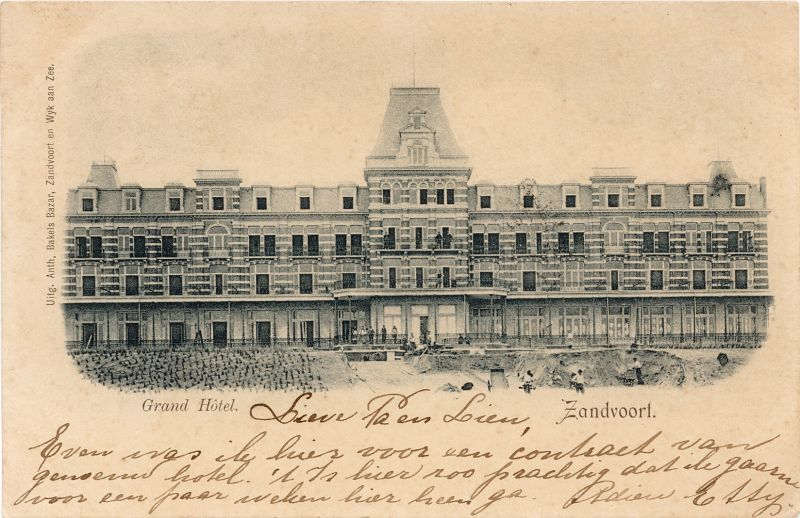 Uitg. Anth, Bakels Bazar, Zandvoort en Wyk aan Zee.
Grand Hôtel.
Zandvoort.
Lieve Pa en Lien,
Even was ik hier voor een contract van
genoemd hotel. 't Is hier zoo prachtig dat ik gaarne
voor een paar weken hier heen ga. Adieu Etty.